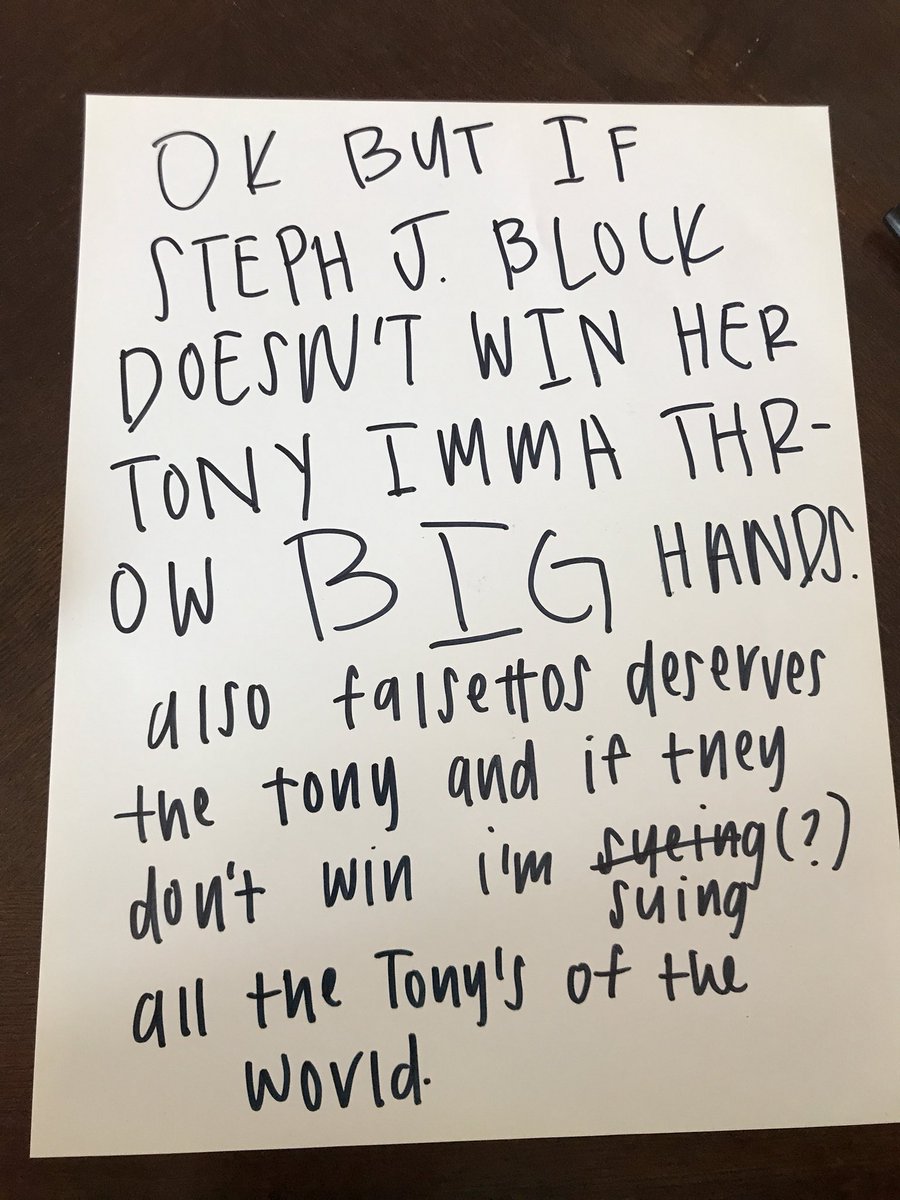 OK BUT IF
STEPH J. BLOCK
DOESN'T WIN HER
TONY IMMA THR-
OW BIG HANDS.
also falsettos deserves
the tony and if they
don't win i'm syeing(?)
suing
all the Tony's of the
world.